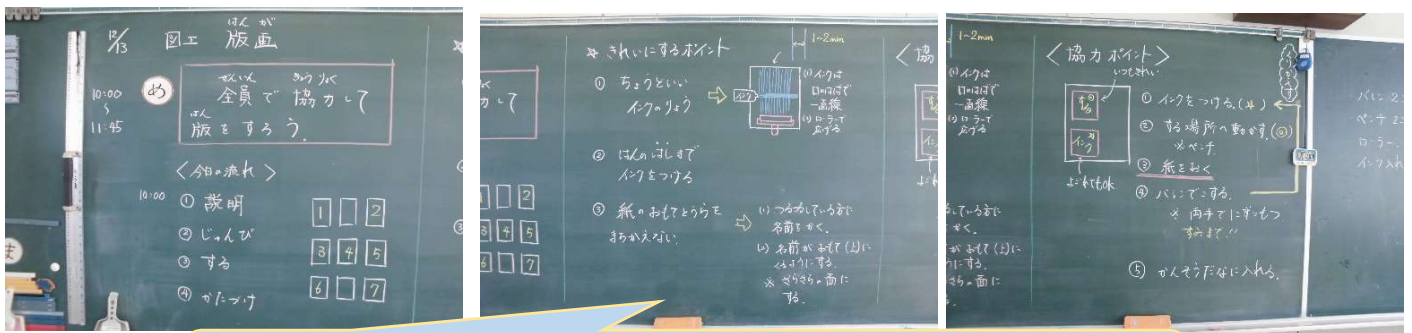 12/13
図工 版画
はんが
め
全員で協力して
ぜんいん きょうりょく
版をすろう。
はん
10:00
〜
11:45
〈今日の流れ〉
10:00 ① 説明
② じゅんび
③ する
④ かたづけ
1 2
3 4 5
6 7
☆ きれいにするポイント
① ちょうどいい
インクのりょう
インク
1~2mm
(1) インクは
口のはばで
一直線
(2) ローラーで
広げる
② はんのはしまで
インクをつける
③ 紙のおもてとうらを
まちがえない。
(1) つるつるしている方に
名前をかく。
(2) 名前がおもて(上)に
くるようにする。
※ ざらざらの面に
する。
1~2mm
〈協力ポイント〉
いつもきれい
する
インク
よごれてもOK
① インクをつける。(☆)
② する場所へ動かす。(◎)
※ ベンチ
③ 紙をおく
④ バレンでこする。
※ 両手で
すみまで!!
⑤ かんそうだなに入れる。
バレン 2
ペンチ 2
ローラー
インク入れ